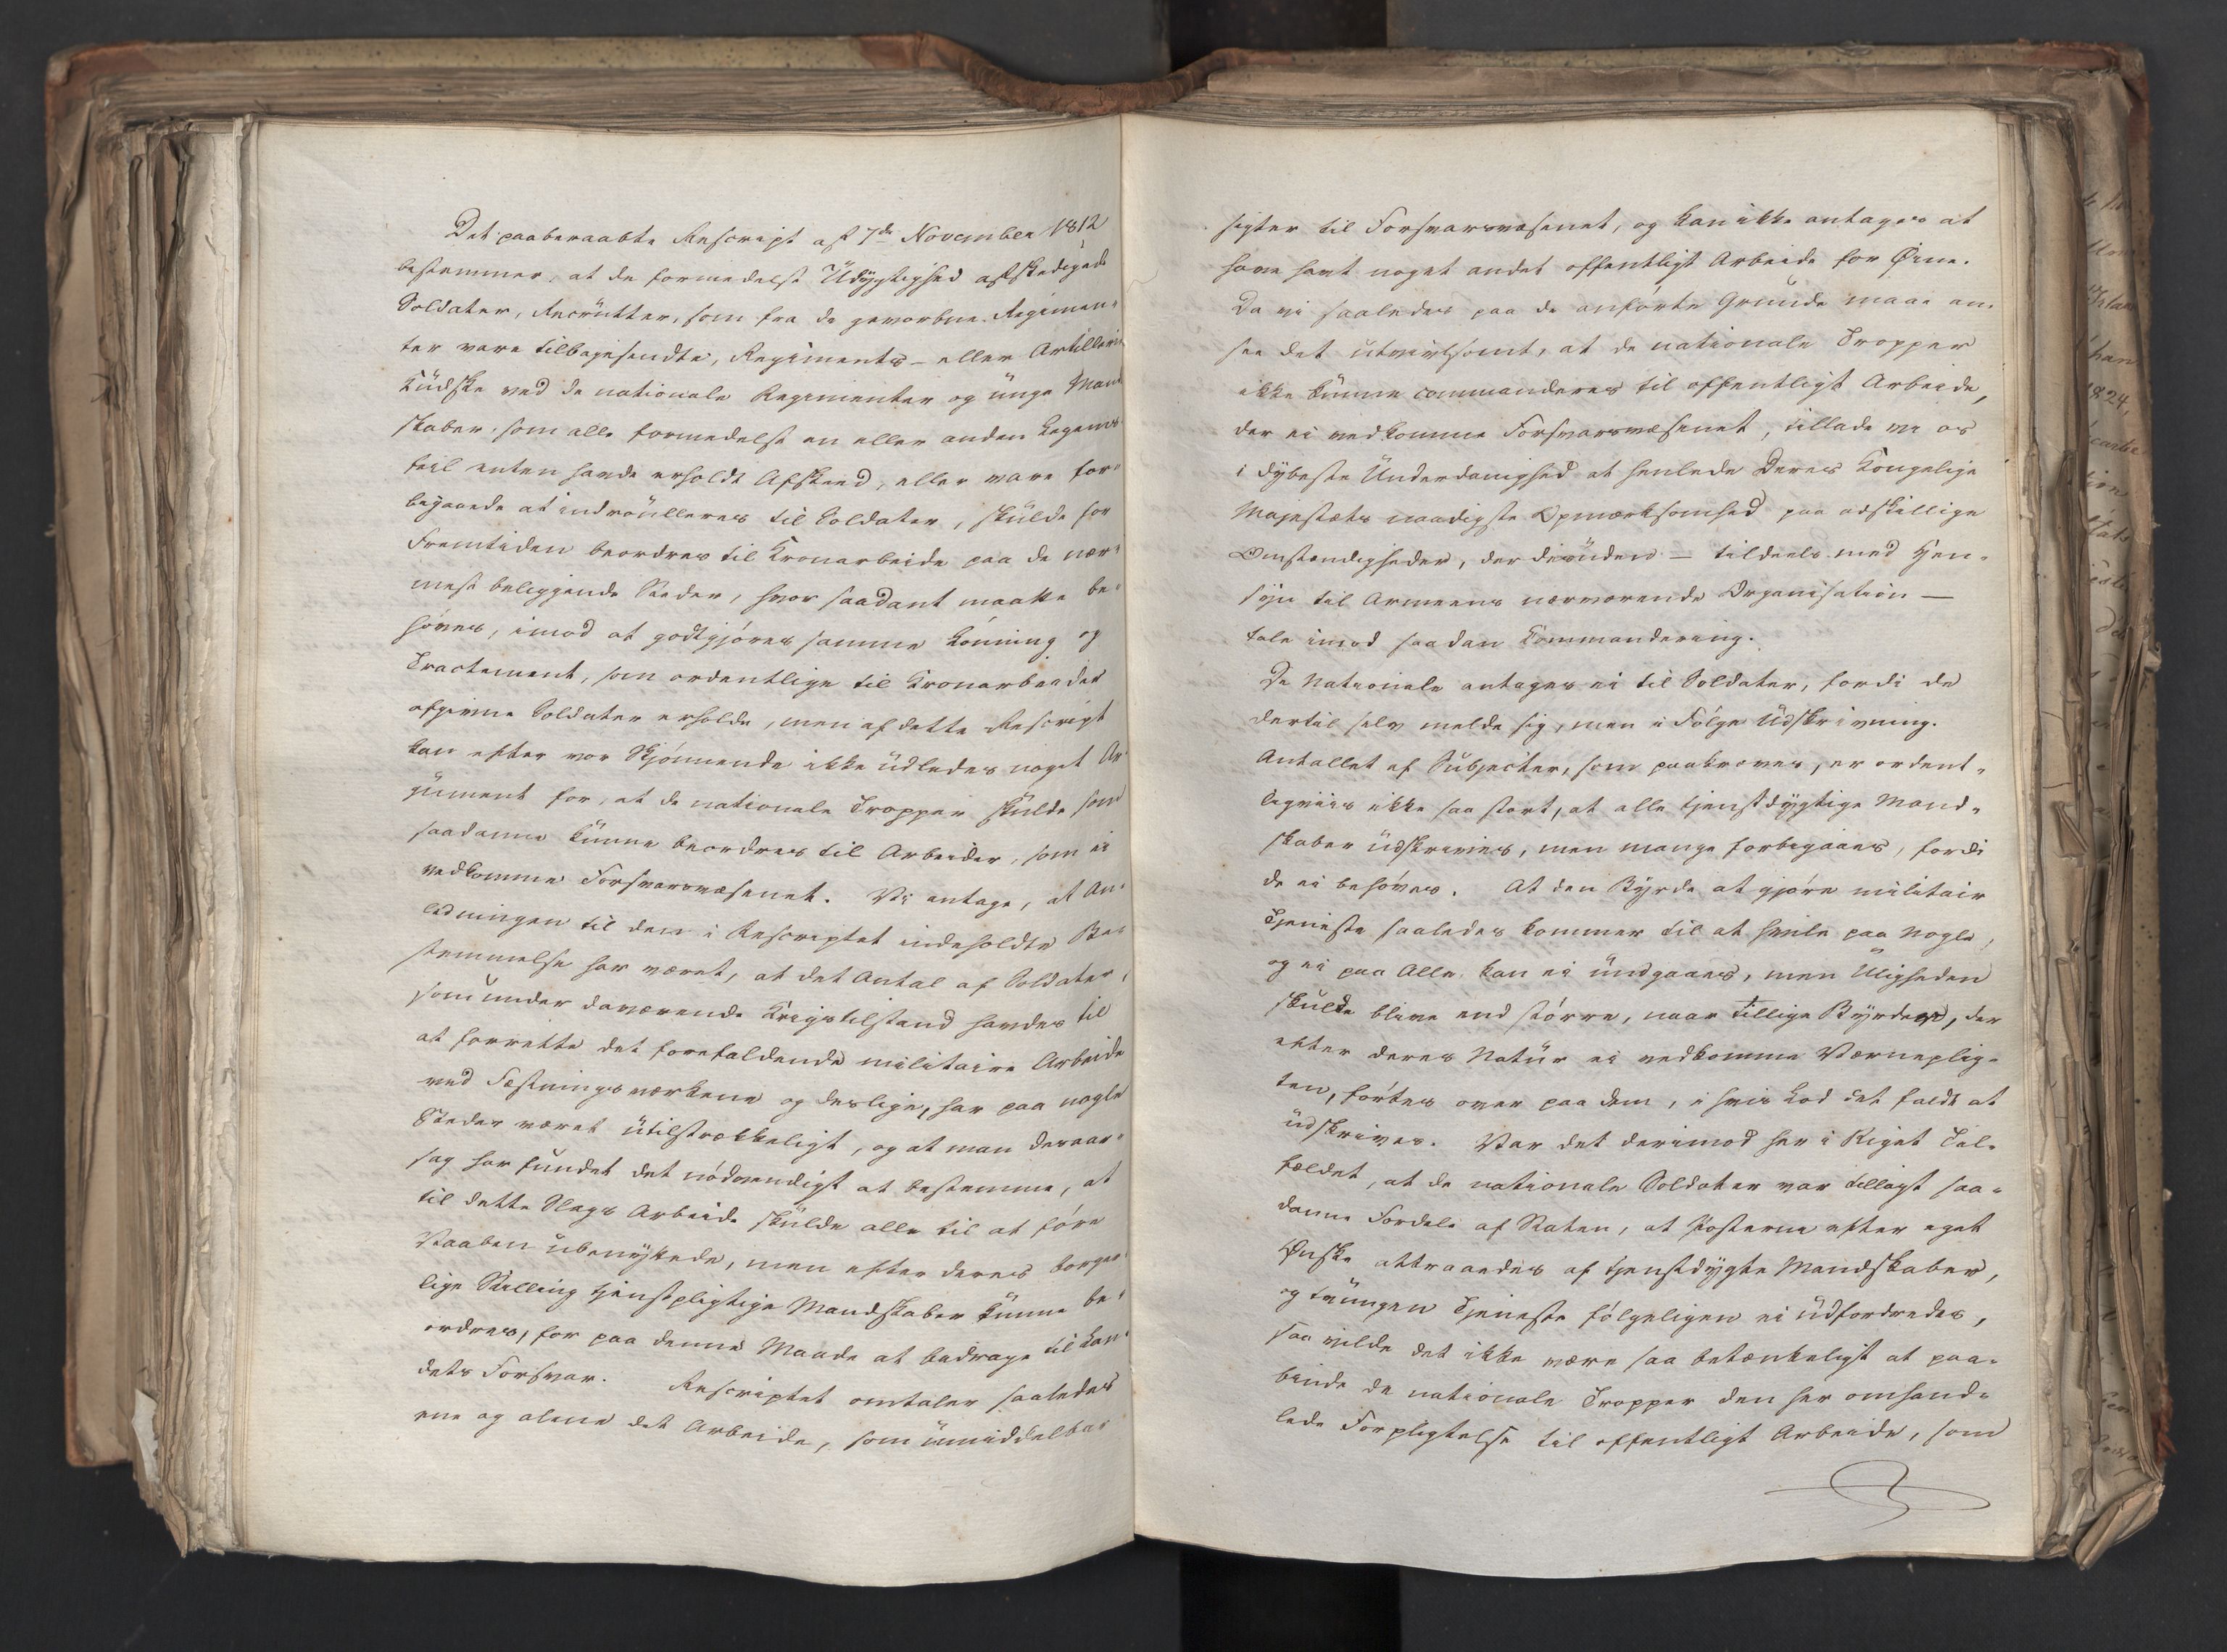 Det paaberaabte Rescript af 7de November 1812
bestemmer, at de formedelst Udygtighed afskedigede
Soldater, Recrutter, som fra de gevorbne Regimen-
ter vare tilbagesendte, Regiments- eller Artillerie
Kudske ved de nationale Regimenter og unge Mand
skaber, som alle formedelst en eller anden Legems
feil enten havde erholdt Afskeed, eller vare for-
bigaaede at indroulleres til Soldater, skulde for
Fremtiden beordres til Kronarbeide paa de nær-
mest beliggende Steder, hvor saadant maatte be-
høves, imod at godtgjøres samme Lønning og
Tractement, som ordentlige til Kronarbeider
afgivne Soldater erholde, men af dette Rescript
kan efter vor Skjønnende ikke udledes noget Ar
gument for, at de nationale Tropper skulde som
saadanne kunne beordres til Arbeider, som ei
vedkomme Forsvarsvæsenet. Vi antage, at An-
ledningen til den i Rescriptet indeholdte Be-
stemmelse har været, at det Antal af Soldater,
som under daværende Krigstilstand havdes til
at forrette det forefaldende militaire Arbeide
ved Fæstningsværkene og deslige, har paa nogle
Steder været utilstrækkeligt, og at man desaar-
sag har fundet det nødvendigt at bestemme, at
til dette Slags Arbeide skulde alle til at føre
Vaaben ubenyttede, men efter deres borger-
lige Stilling tjenstpligtige Mandskaber kunne be-
ordres, for paa denne Maade at bedrage til Lan-
dets Forsvar. Rescriptet omtaler saaledes
ene og alene det Arbeide, som umiddelbar
sigter til Forsvarsvæsenet, og kan ikke antages at
have havt noget andet offentligt Arbeide for Øine.
Da vi saaledes paa de anførte Grunde maae an-
see det utvivlsomt, at de nationale Tropper
ikke kunne commanderes til offentligt Arbeide,
der ei vedkomme Forsvarsvæsenet, tillade vi os
i dybeste Underdanighed at henlede Deres Kongelige
Majestæts naadigste Opmærksomhed paa adskillige
Omstændigheder, der desuden – tildeels med Hen-
syn til Armeens nærværende Organisation –
tale imod saadan Kommandering.
De Nationale antages ei til Soldater, fordi de
dertil selv melde sig, men i Følge Udskrivning.
Antallet af Subjecter, som paakræves, er ordent-
ligviis ikke saa stort, at alle tjenstdygtige Mand-
skaber udskrives, men mange forbigaaes, fordi
de ei behøves. At den Byrde at gjøre militair
Tjeneste saaledes kommer til at hvile paa Nogle,
og ei paa Alle, kan ei undgaaes, men Uligheden
skulde blive end større, naar tillige Byrder, der
efter deres Natur ei vedkomme Værneplig-
ten, førtes over paa dem, i hvis Lod det faldt at
udskrives. Var det derimod her i Riget Til-
fældet, at de nationale Soldater var tillagt saa-
danne Fordele af Staten, at Posterne efter eget
Ønske attraaedes af tjenstdygtige Mandskaber,
og tvungen Tjeneste følgeligen ei udfordredes,
saa vilde det ikke være saa betænkeligt at paa-
binde de nationale Tropper den her omhand-
lede Forpligtelse til offentligt Arbeide, som